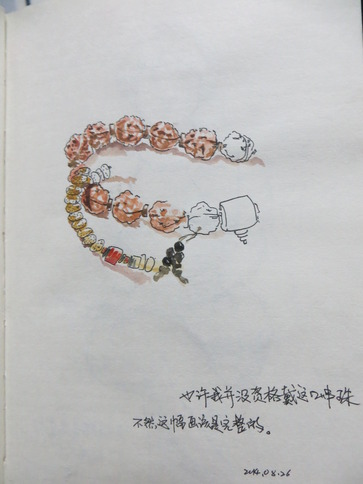 也许我并没资格戴这几串珠
不然，这幅画该是完整的。